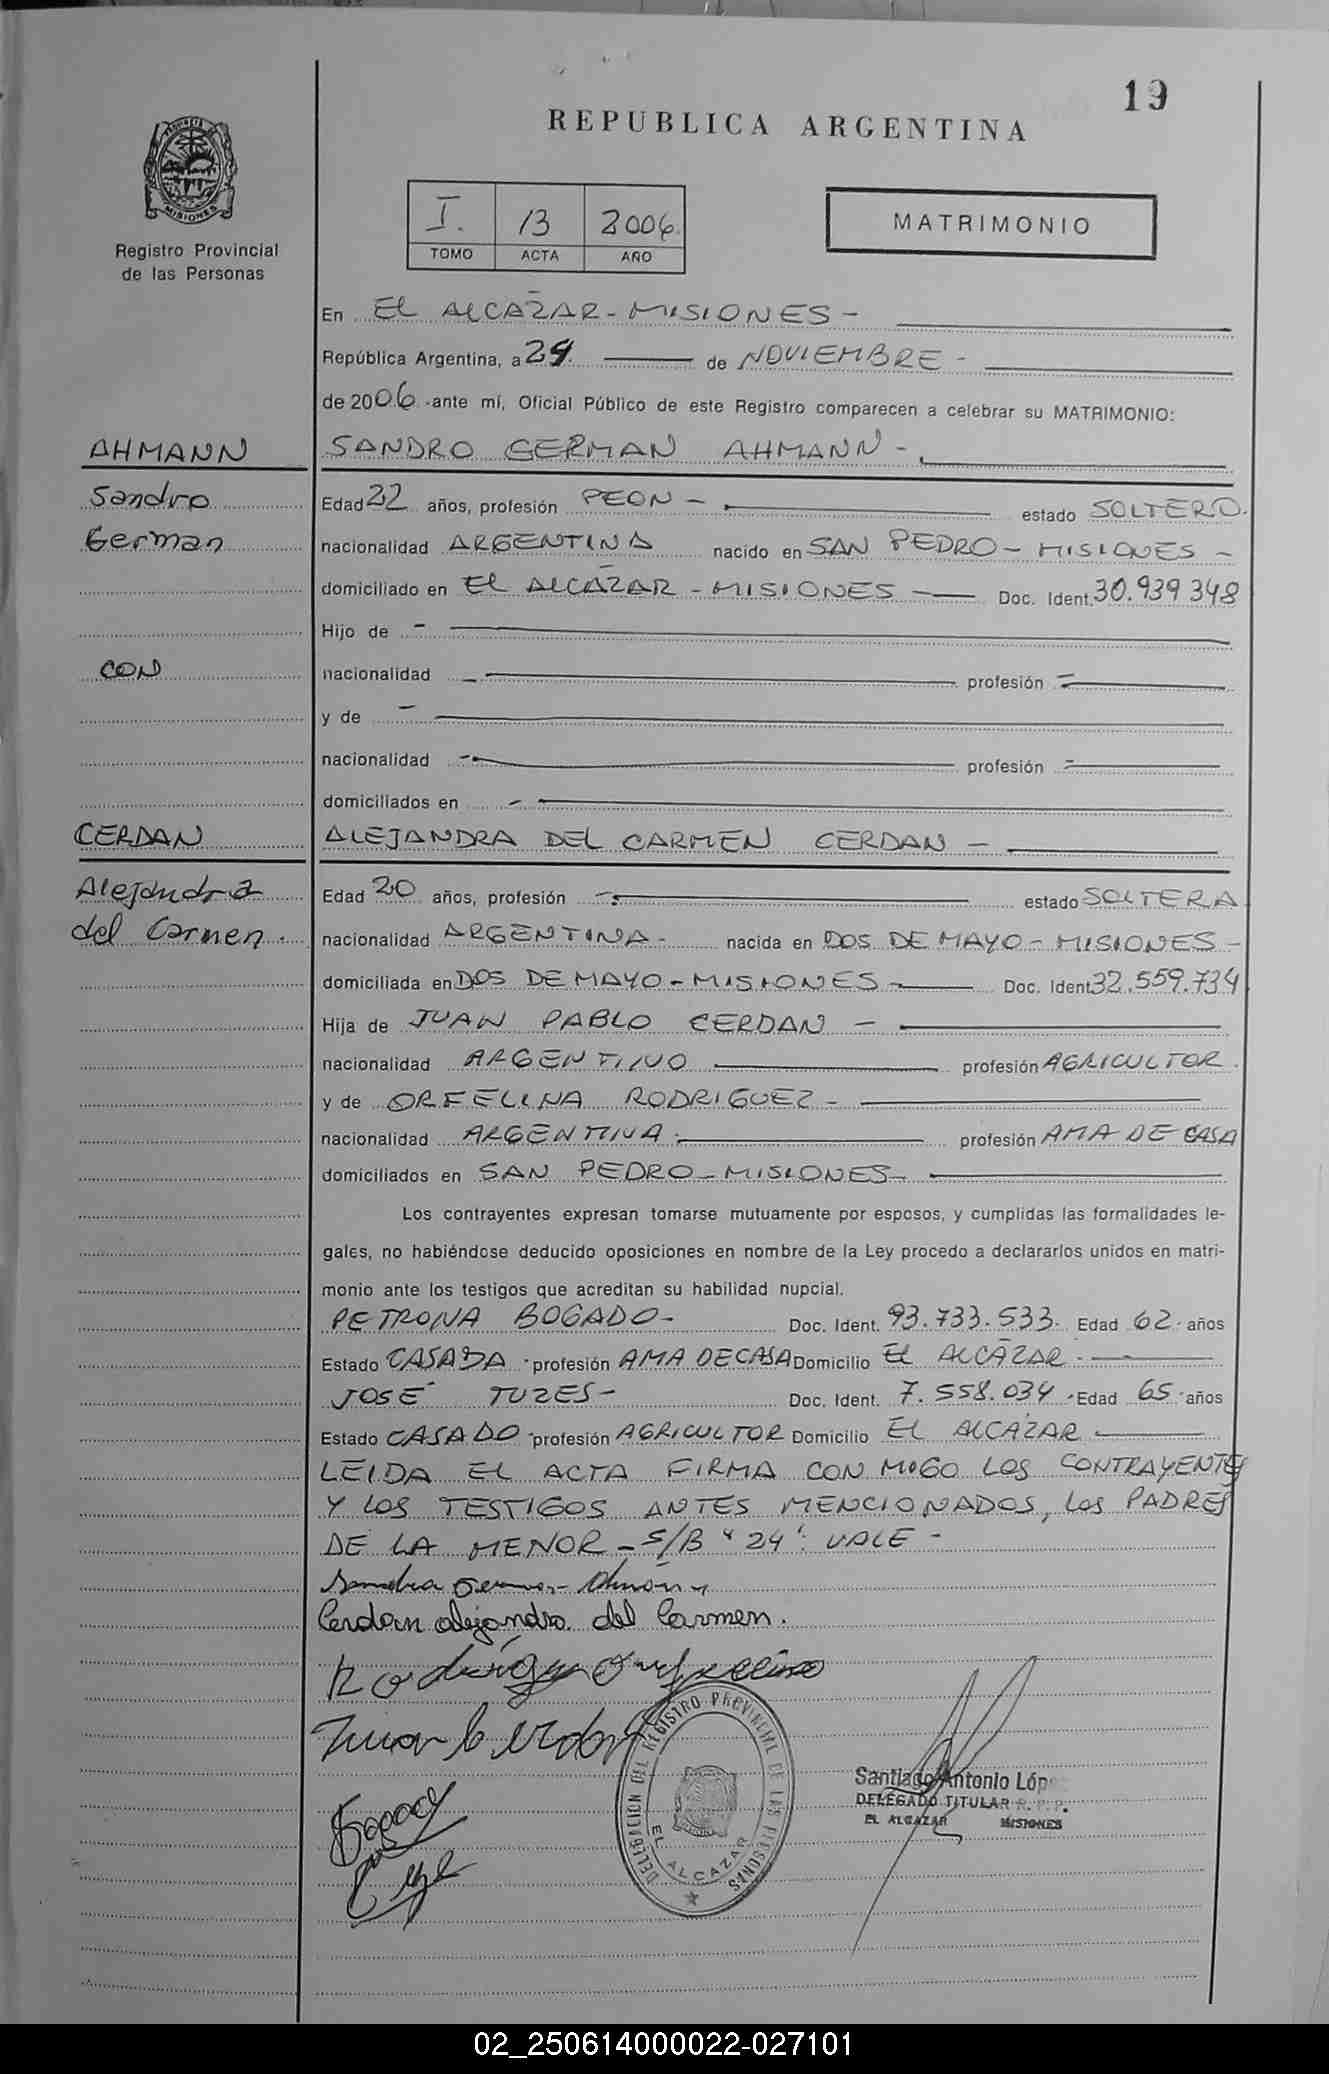 19
REPUBLICA ARGENTINA
PROVINCIA DE
MISIONES
Registro Provincial
de las Personas
I. 13 2006
TOMO ACTA AÑO
MATRIMONIO
En EL ALCAZAR - MISIONES -
República Argentina, a 24 de NOVIEMBRE -
de 2006 -ante mí, Oficial Público de este Registro comparecen a celebrar su MATRIMONIO:
AHMANN
SANDRO GERMAN AHMANN -
Sandro
Edad 22 años, profesión PEON - estado SOLTERO.
German
nacionalidad ARGENTINA nacido en SAN PEDRO - MISIONES -
domiciliado en EL ALCAZAR - MISIONES - Doc. Ident. 30.939 348
Hijo de -
CON
nacionalidad - profesión -
y de -
nacionalidad - profesión -
domiciliados en -
CERDAN
ALEJANDRA DEL CARMEN CERDAN -
Alejandra
Edad 20 años, profesión - estado SOLTERA
del Carmen.
nacionalidad ARGENTINA - nacida en DOS DE MAYO - MISIONES -
domiciliada en DOS DE MAYO - MISIONES - Doc. Ident 32.559.734
Hija de JUAN PABLO CERDAN -
nacionalidad ARGENTINO profesión AGRICULTOR.
y de ORFELINA RODRIGUEZ -
nacionalidad ARGENTINA. profesión AMA DE CASA
domiciliados en SAN PEDRO - MISIONES -
Los contrayentes expresan tomarse mutuamente por esposos, y cumplidas las formalidades le-
gales, no habiéndose deducido oposiciones en nombre de la Ley procedo a declararlos unidos en matri-
monio ante los testigos que acreditan su habilidad nupcial.
PETRONA BOGADO - Doc. Ident. 93.733.533. Edad 62 años
Estado CASADA profesión AMA DE CASA Domicilio EL ALCAZAR -
JOSÉ TUZES - Doc. Ident. 7.558.034 Edad 65 años
Estado CASADO profesión AGRICULTOR Domicilio EL ALCAZAR
LEIDA EL ACTA FIRMA CON MIGO LOS CONTRAYENTES
Y LOS TESTIGOS ANTES MENCIONADOS, LOS PADRES
DE LA MENOR - S/B "24": VALE -
Cerdan alejandra del Carmen.
Rodriguez
Juan Cerdan
Bogado
DELEGACION DEL REGISTRO PROVINCIAL DE LAS PERSONAS
EL ALCAZAR
Santiago Antonio Lóp
DELEGADO TITULAR R. P. P.
EL ALCAZAR MISIONES
02_250614000022-027101